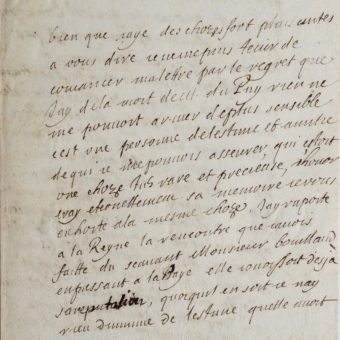 bien que jaye des choses fort plaisantes
a vous dire je ne me puis tenir de
comancer ma lettre par le regret que
Jay de la mort de M. du Puy rien ne
me pouvoit ariver de plus sensible
cest une personne destime et
de qui je me pouvois asseurer, qui estoit
une choze rare et precieuse,
eray eternellement sa memoire je vous
enhorte a la mesme choze. Jay raporté
a la Reyne la rencontre que javois
faitte du scavant Monsieur bouillaud
en passant a la haye elle connoissoit desja
sa reputation, quoiqu'il en soit je nay
rien diminué de lestime quelle avoit